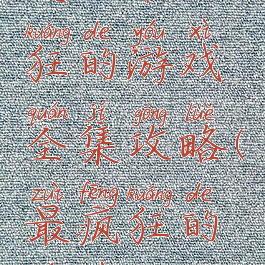 kuáng de yóu xì
狂的游戏
quán jí gōng lüè
全集攻略(
zuì fēng kuáng de
最疯狂的